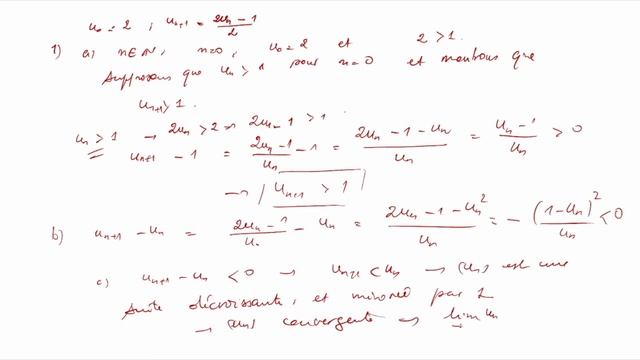 u₀ = 2 ; uₙ₊₁ = (2uₙ - 1)/2
1) a) n∈ℕ, n=0, u₀=2 et 2 > 1.
Supposons que uₙ > 1 pour n=0 et montrons que
uₙ₊₁ > 1.
uₙ > 1 → 2uₙ > 2 → 2uₙ - 1 > 1.
uₙ₊₁ - 1 = (2uₙ - 1)/uₙ - 1 = (2uₙ - 1 - uₙ)/uₙ = (uₙ - 1)/uₙ > 0
→ uₙ₊₁ > 1
b) uₙ₊₁ - uₙ = (2uₙ - 1)/uₙ - uₙ = (2uₙ - 1 - uₙ²)/uₙ = - (1 - uₙ)²/uₙ < 0
c) uₙ₊₁ - uₙ < 0 → uₙ₊₁ < uₙ → (uₙ) est une
suite décroissante, et minoré par 1
→ (uₙ) convergente → lim uₙ